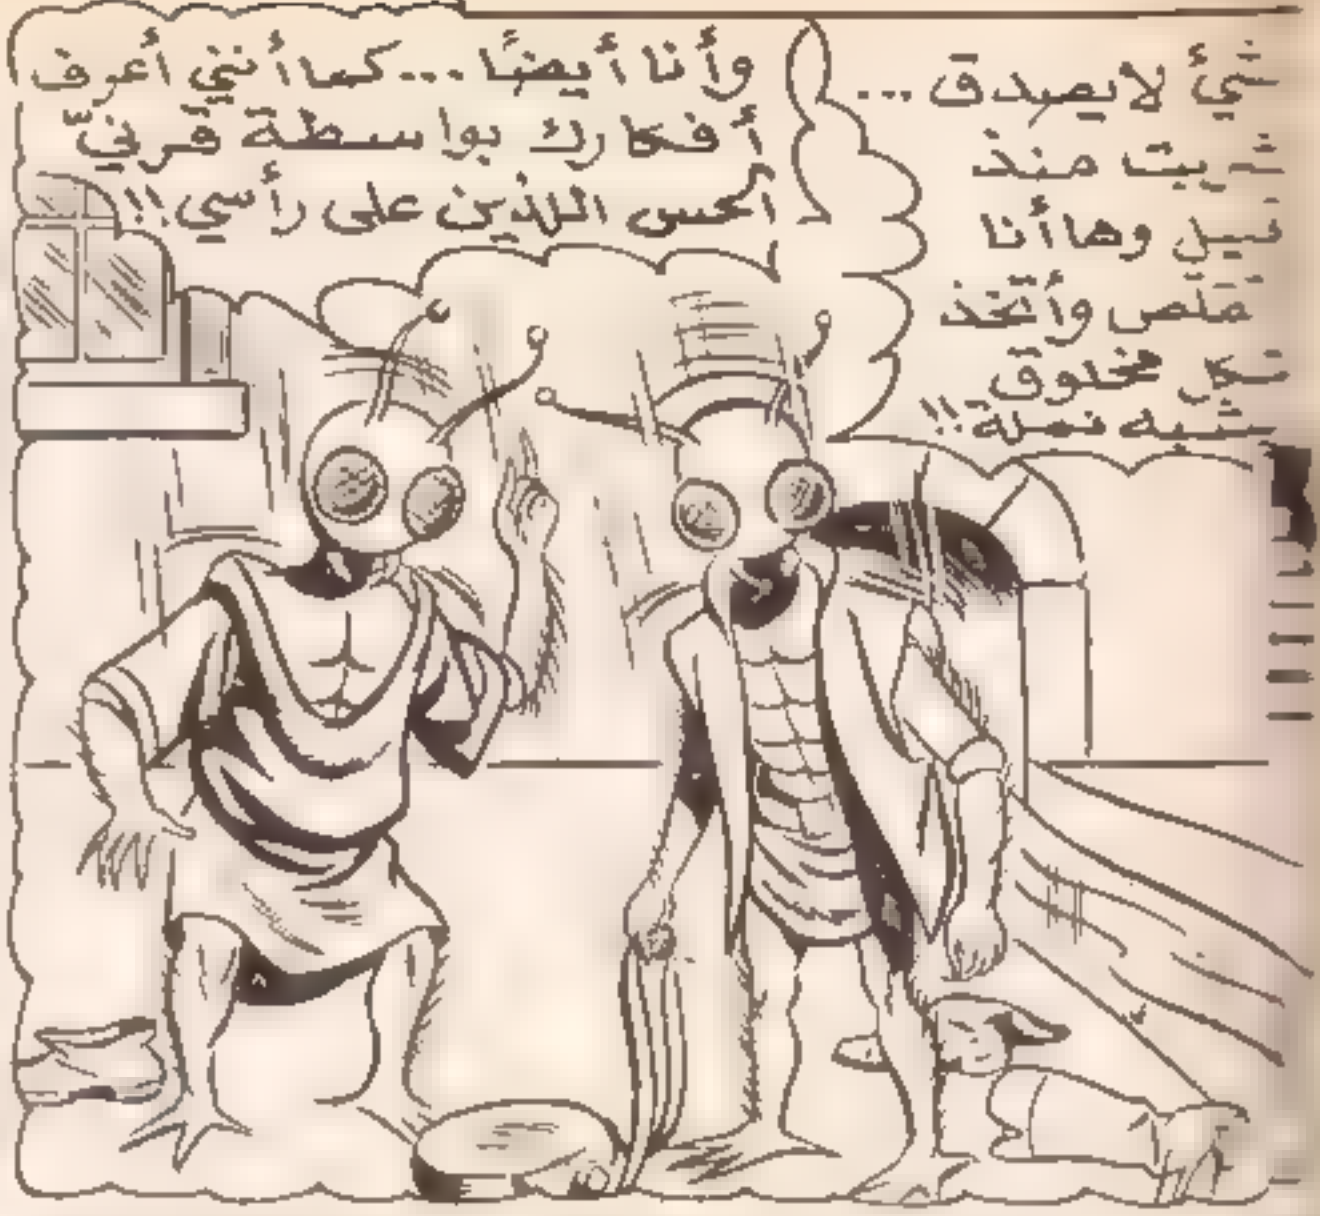 شيء لا يصدق ...
منذ
وها أنا
أتقلص وأتخذ
شكل مخلوق
يشبه نملة!!
وأنا أيضًا ... كما أنني أعرف
أفكارك بواسطة قرنيّ
الحس اللذين على رأسي!!